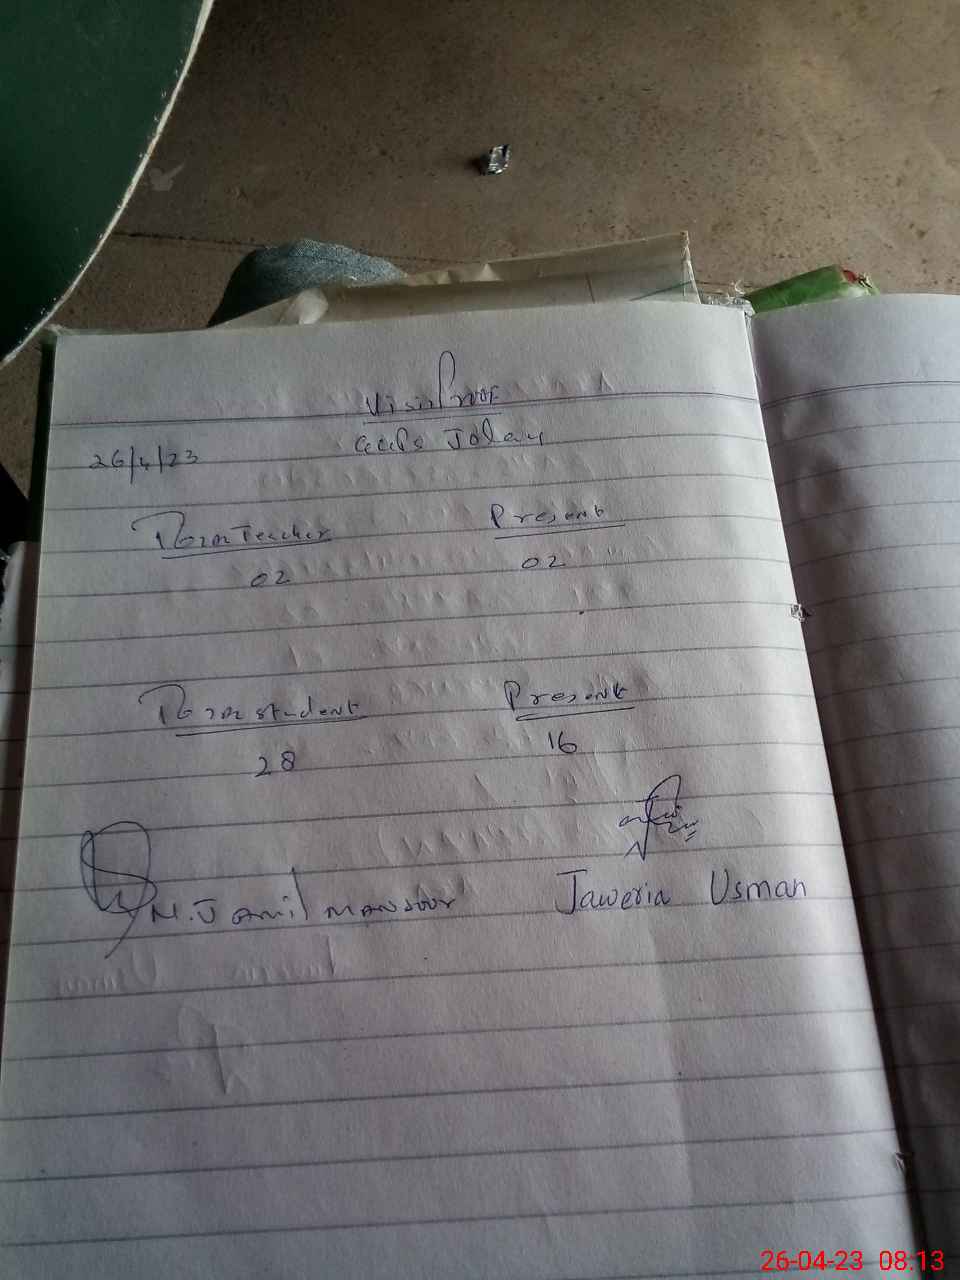 Visit Proof
26/4/23
Teacher Present
02 02
student Present
28 16
M. Jamil Mansoor Jaweria Usman
26-04-23 08.13